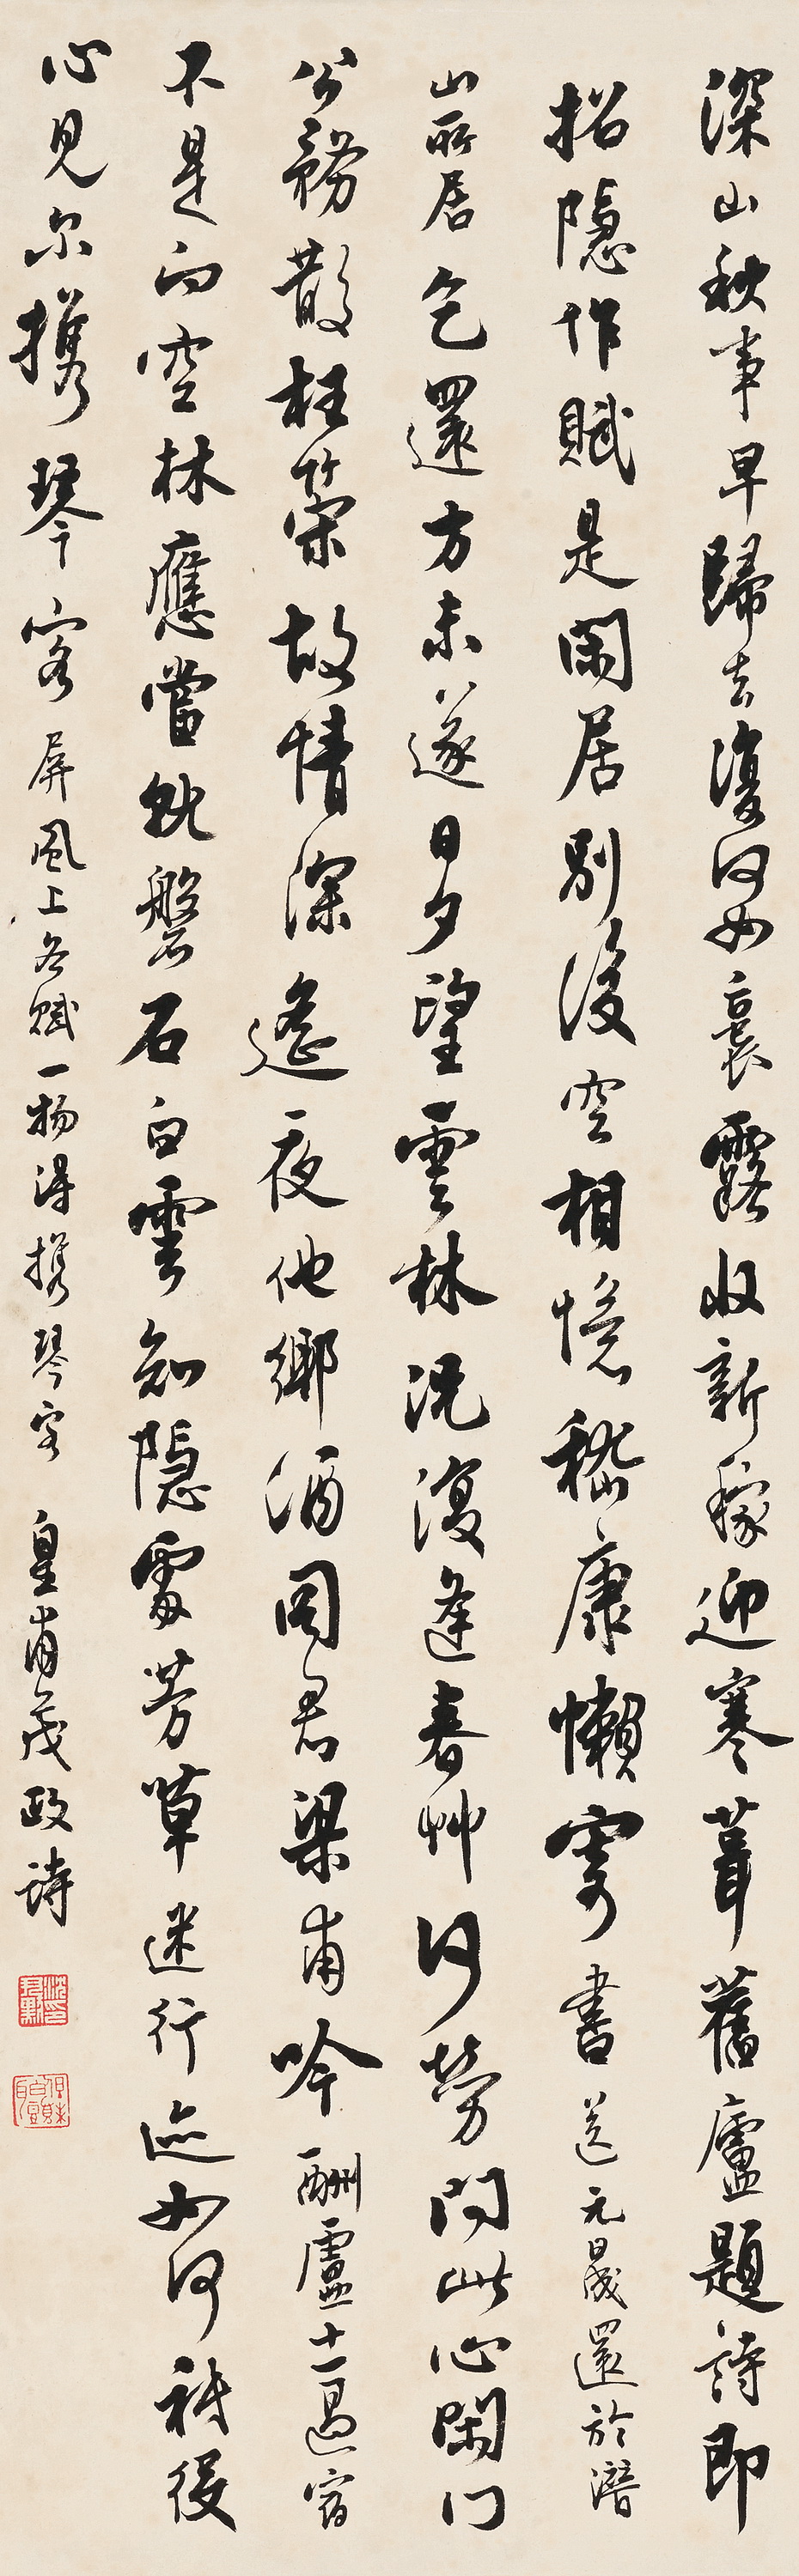 深山秋事早歸去復何如裛露收新稼迎寒葺舊廬題詩即
招隱作賦是閑居別後空相憶嵇康懶寄書送元晟還於潛
山所居乞還方未遂日夕望雲林況復逢春艸何勞問此心閑门
公務散枉策故情深遙夜他鄉酒同君梁甫吟酬盧十一過宿
不是向空林應當就磐石白雲知隱處芳草迷行迹如何祇役
心見尔攜琴客屏風上各賦一物得攜琴客皇甫茂政詩